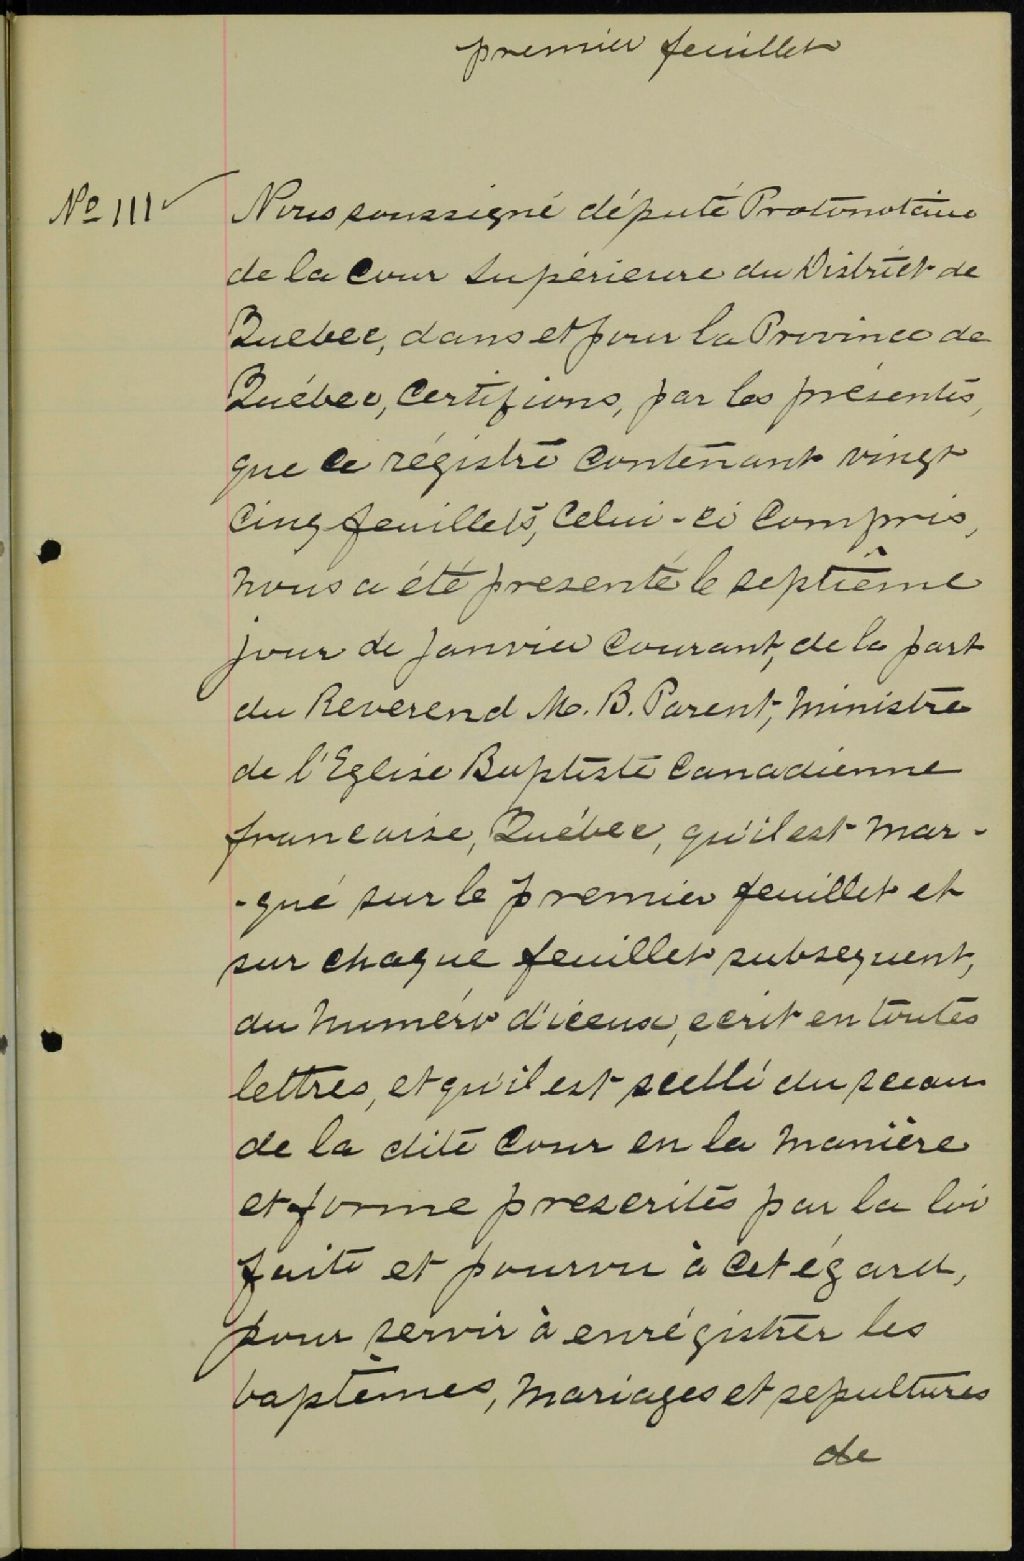 premier feuillet
No 111
Nous soussigné député Protonotaire
de la Cour Supérieure du District de
Québec, dans et pour la Province de
Québec, Certifions, par les présentes,
que ce régistre contenant vingt
cinq feuillets, celui-ci compris,
nous a été presenté le septième
jour de Janvier courant, de la part
du Reverend M. B. Parent, Ministre
de l'Eglise Baptiste Canadienne
francaise, Québec, qu'il est mar-
-qué sur le premier feuillet et
sur chaque feuillet subsequent,
du numéro d'iceux, ecrit en toutes
lettres, et qu'il est scellé du sceau
de la dite Cour en la manière
et forme prescrites par la loi
faite et pourvu à cet égard,
pour servir à enrégistrer les
baptêmes, mariages et sepultures
de